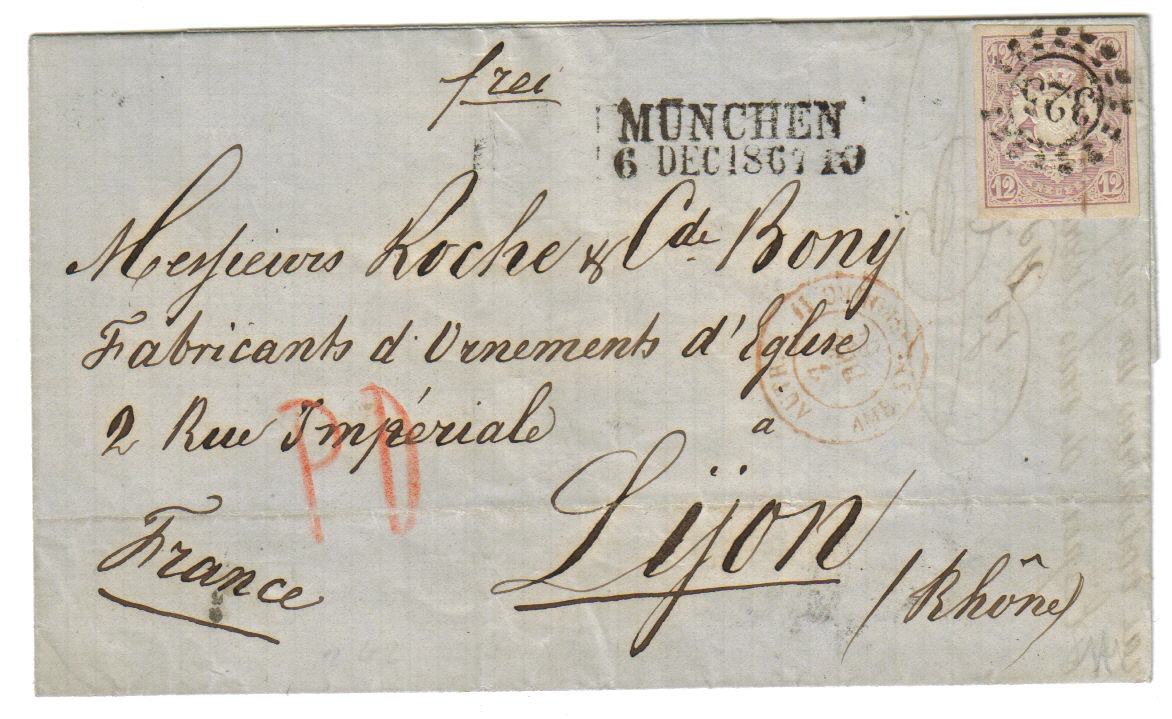 frei
MÜNCHEN
6 DEC 1867 10
12 12
325
12 12
Messieurs Roche & Cde Bonÿ
Fabricants d'Ornements d'Eglise
2 Rue Impériale à
PD
Lÿon
France
(Rhône)
AUTR.
AMB.